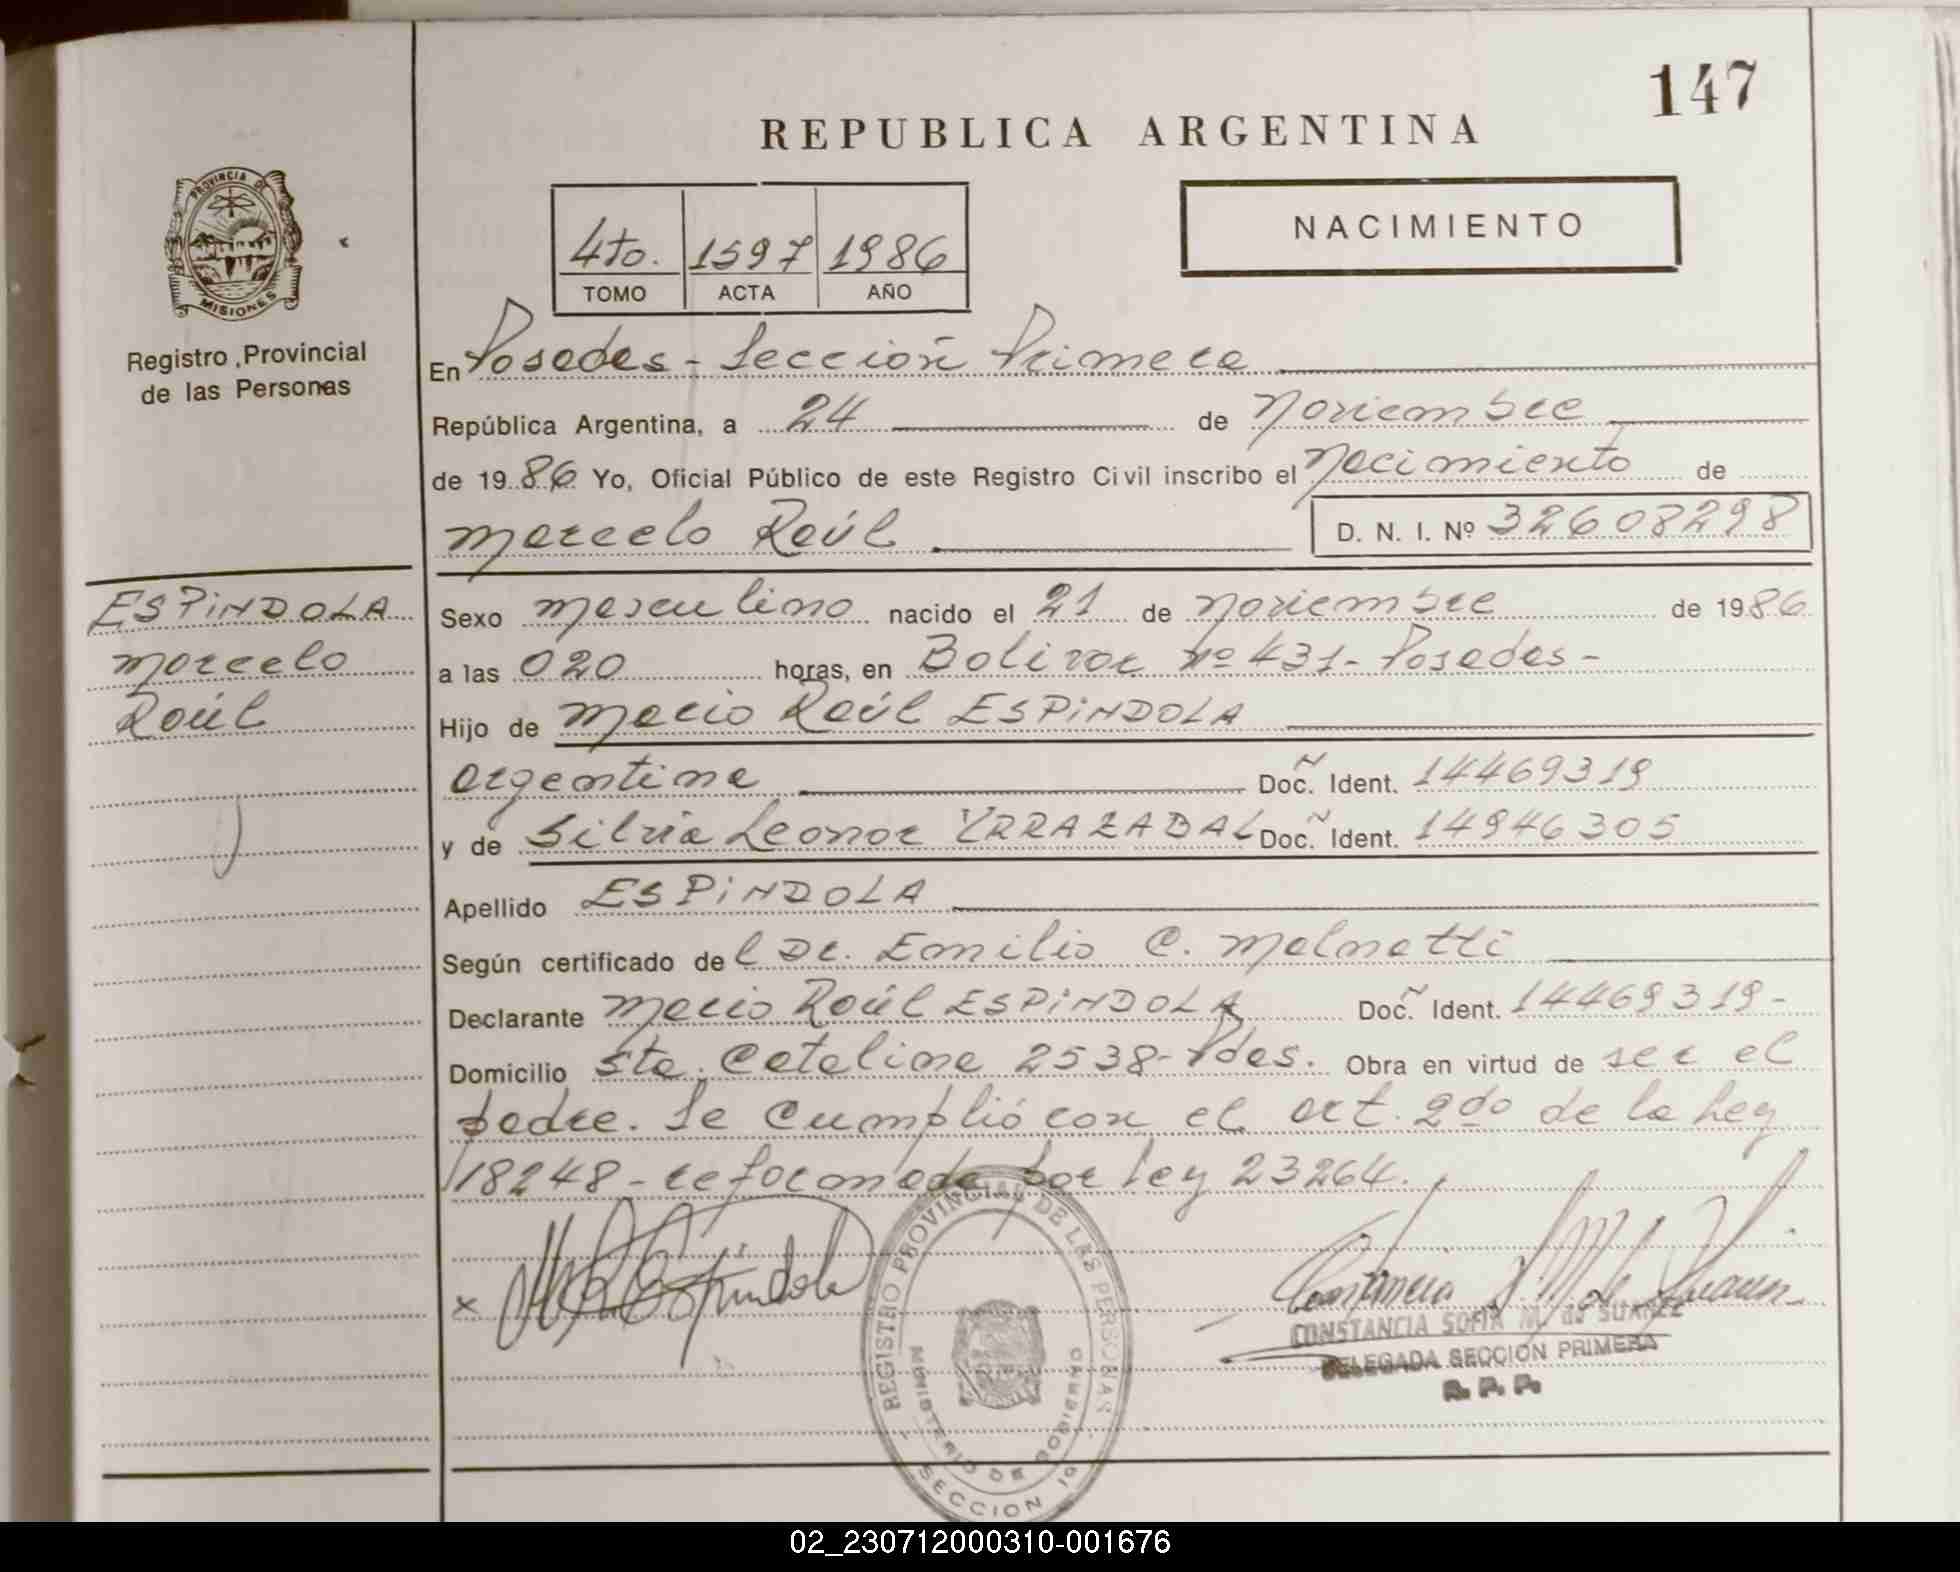 147
REPUBLICA ARGENTINA
PROVINCIA DE
MISIONES
Registro Provincial
de las Personas
4to. 1597 1986
TOMO ACTA AÑO
NACIMIENTO
En Posadas - Sección Primera
República Argentina, a 24 de Noviembre
de 1986 Yo, Oficial Público de este Registro Civil inscribo el Nacimiento de
Marcelo Raúl D. N. I. Nº 32608298
ESPINDOLA
Marcelo
Raúl
Sexo masculino nacido el 21 de Noviembre de 1986
a las 020 horas, en Bolivar nº 431- Posadas-
Hijo de Mario Raúl ESPINDOLA
argentina Doc. Ident. 14469319
y de Silvia Leonor YRRAZABAL Doc. Ident. 14946305
Apellido ESPINDOLA
Según certificado del Dr. Emilio C. Malnatti
Declarante Mario Raúl ESPINDOLA Doc. Ident. 14469319-
Domicilio Sta. Catalina 2538- Pdas. Obra en virtud de ser el
padre. Se cumplió con el art. 2do de la Ley
18248 - reformada por ley 23264.
x Espindola
REGISTRO PROVINCIAL DE LAS PERSONAS
MINISTERIO DE GOBIERNO
SECCION 1º
CONSTANCIA SOFIA M. de SUAREZ
DELEGADA SECCION PRIMERA
R. P. P.
02_230712000310-001676